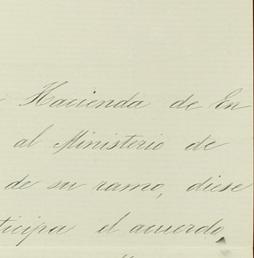 Hacienda de En
al Ministerio de
de su ramo, diese
ticipa el acuerdo